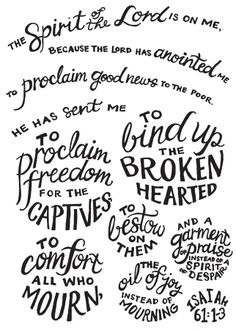 THE Spirit of the Lord IS ON ME,
BECAUSE THE LORD HAS anointed ME
TO proclaim good news TO THE POOR.
HE HAS sent ME
TO
bind up
THE
BROKEN
HEARTED
TO
proclaim
freedom
FOR THE
CAPTIVES
TO
comfort
ALL WHO
MOURN,
TO
bestow
ON
THEM
THE
oil of joy
INSTEAD OF
MOURNING
AND A
garment
OF praise
INSTEAD OF A
SPIRIT
OF
DESPAIR
ISAIAH
61:1-3